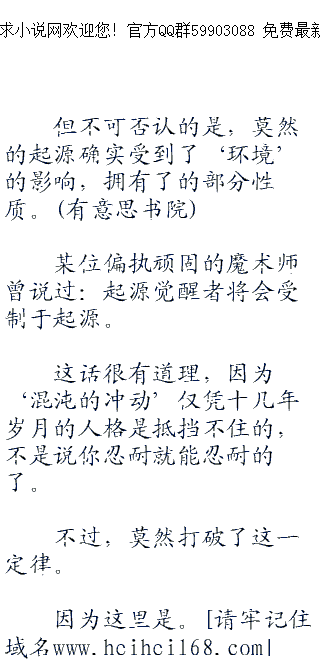 求小说网欢迎您! 官方QQ群59903088 免费最新
但不可否认的是，莫然
的起源确实受到了‘环境’
的影响，拥有了的部分性
质。(有意思书院)
某位偏执顽固的魔术师
曾说过：起源觉醒者将会受
制于起源。
这话很有道理，因为
‘混沌的冲动’仅凭十几年
岁月的人格是抵挡不住的，
不是说你忍耐就能忍耐的
了。
不过，莫然打破了这一
定律。
因为这里是。[请牢记住
域名www.hcihci168.com|